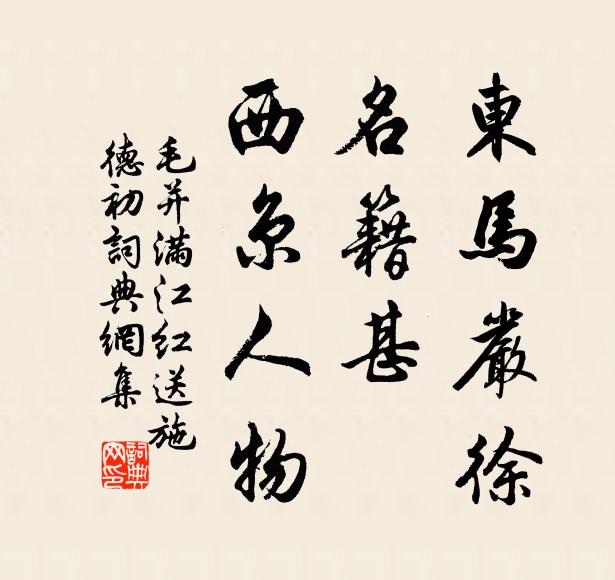 東馬嚴徐
名籍甚
西京人物
毛并滿江红送施
德初詞典網集
詞典
网印